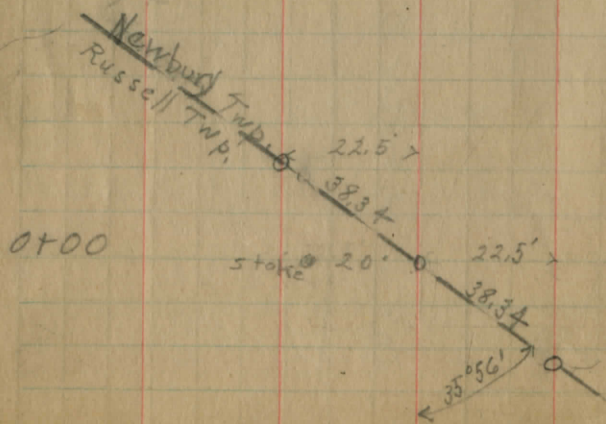 Newbury Twp.
Russell Twp.
22.5'
38.34
0+00
stake 20'
22.5'
38.34
35°56'